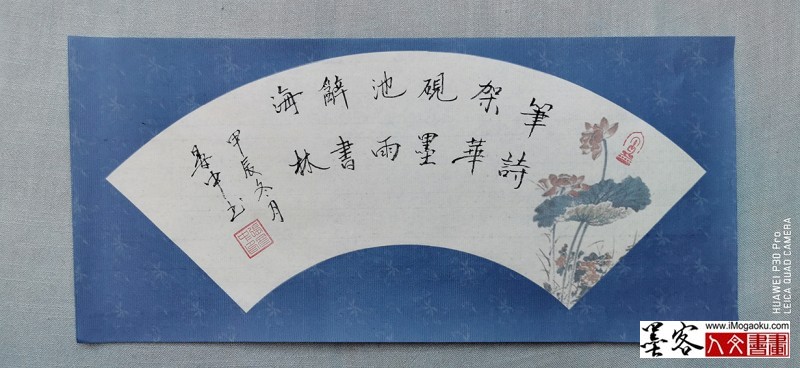 筆架硯池辭海
詩華墨雨書林
甲辰冬月
中书
HUAWEI P30 Pro
LEICA QUAD CAMERA
www.iMogaoku.com
墨客人文書畫